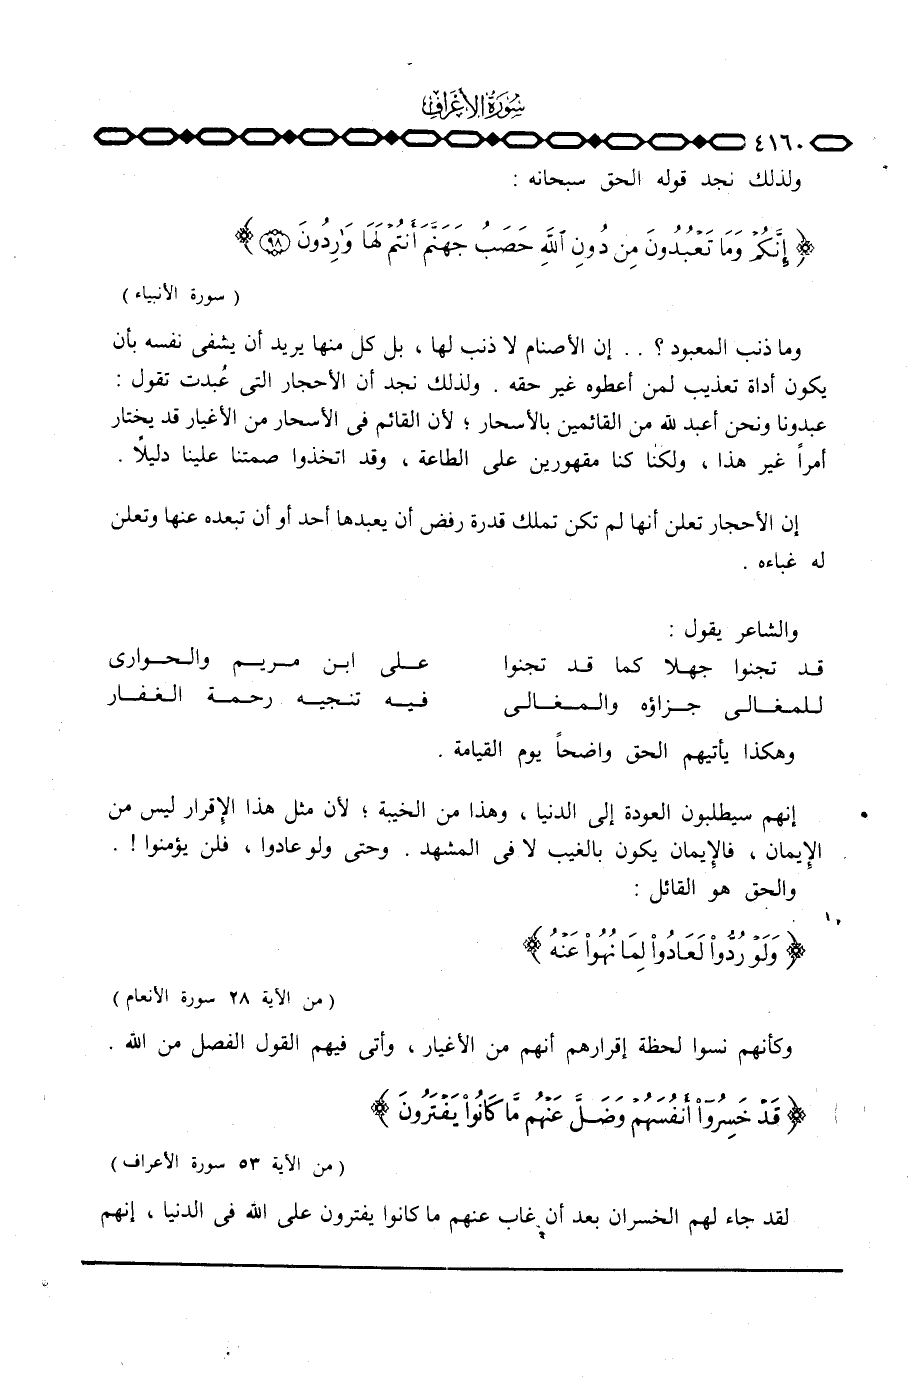 سورة الأعراف
٤١٦٠
ولذلك نجد قوله الحق سبحانه :
﴿ إِنَّكُمْ وَمَا تَعْبُدُونَ مِن دُونِ ٱللَّهِ حَصَبُ جَهَنَّمَ أَنتُمْ لَهَا وَٰرِدُونَ ﴿٩٨﴾ ﴾
( سورة الأنبياء )
وما ذنب المعبود ؟ . . إن الأصنام لا ذنب لها ، بل كل منها يريد أن يشفى نفسه بأن
يكون أداة تعذيب لمن أعطوه غير حقه . ولذلك نجد أن الأحجار التى عُبدت تقول :
عبدونا ونحن أعبد لله من القائمين بالأسحار ؛ لأن القائم فى الأسحار من الأغيار قد يختار
أمراً غير هذا ، ولكنا كنا مقهورين على الطاعة ، وقد اتخذوا صمتنا علينا دليلاً .
إن الأحجار تعلن أنها لم تكن تملك قدرة رفض أن يعبدها أحد أو أن تبعده عنها وتعلن
له غباءه .
والشاعر يقول :
قد تجنوا جهلا كما قد تجنوا على ابن مريم والحوارى
للمغالى جزاؤه والمغالى فيه تنجيه رحمة الغفار
وهكذا يأتيهم الحق واضحاً يوم القيامة .
إنهم سيطلبون العودة إلى الدنيا ، وهذا من الخيبة ؛ لأن مثل هذا الإقرار ليس من
الإيمان ، فالإيمان يكون بالغيب لا فى المشهد . وحتى ولو عادوا ، فلن يؤمنوا ! .
والحق هو القائل :
﴿ وَلَوْ رُدُّواْ لَعَادُواْ لِمَا نُهُواْ عَنْهُ ﴾
( من الآية ٢٨ سورة الأنعام )
وكأنهم نسوا لحظة إقرارهم أنهم من الأغيار ، وأتى فيهم القول الفصل من الله .
﴿ قَدْ خَسِرُوٓاْ أَنفُسَهُمْ وَضَلَّ عَنْهُم مَّا كَانُواْ يَفْتَرُونَ ﴾
( من الآية ٥٣ سورة الأعراف )
لقد جاء لهم الخسران بعد أن غاب عنهم ما كانوا يفترون على الله فى الدنيا ، إنهم